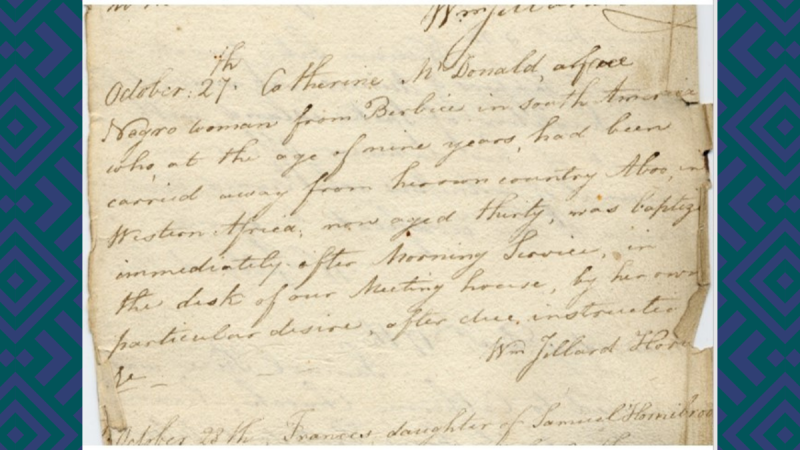 Wm Jillard
October. 27th. Catherine McDonald, a free
Negro woman from Berbice in South America
who, at the age of nine years, had been
carried away from her own country Aboo, in
Western Africa, now aged thirty, was baptize
immediately after Morning Service, in
the desk of our Meeting house, by her own
particular desire, after due instructio
Wm Jillard Hor
October 28th, Frances, daughter of Samuel Hornibroo